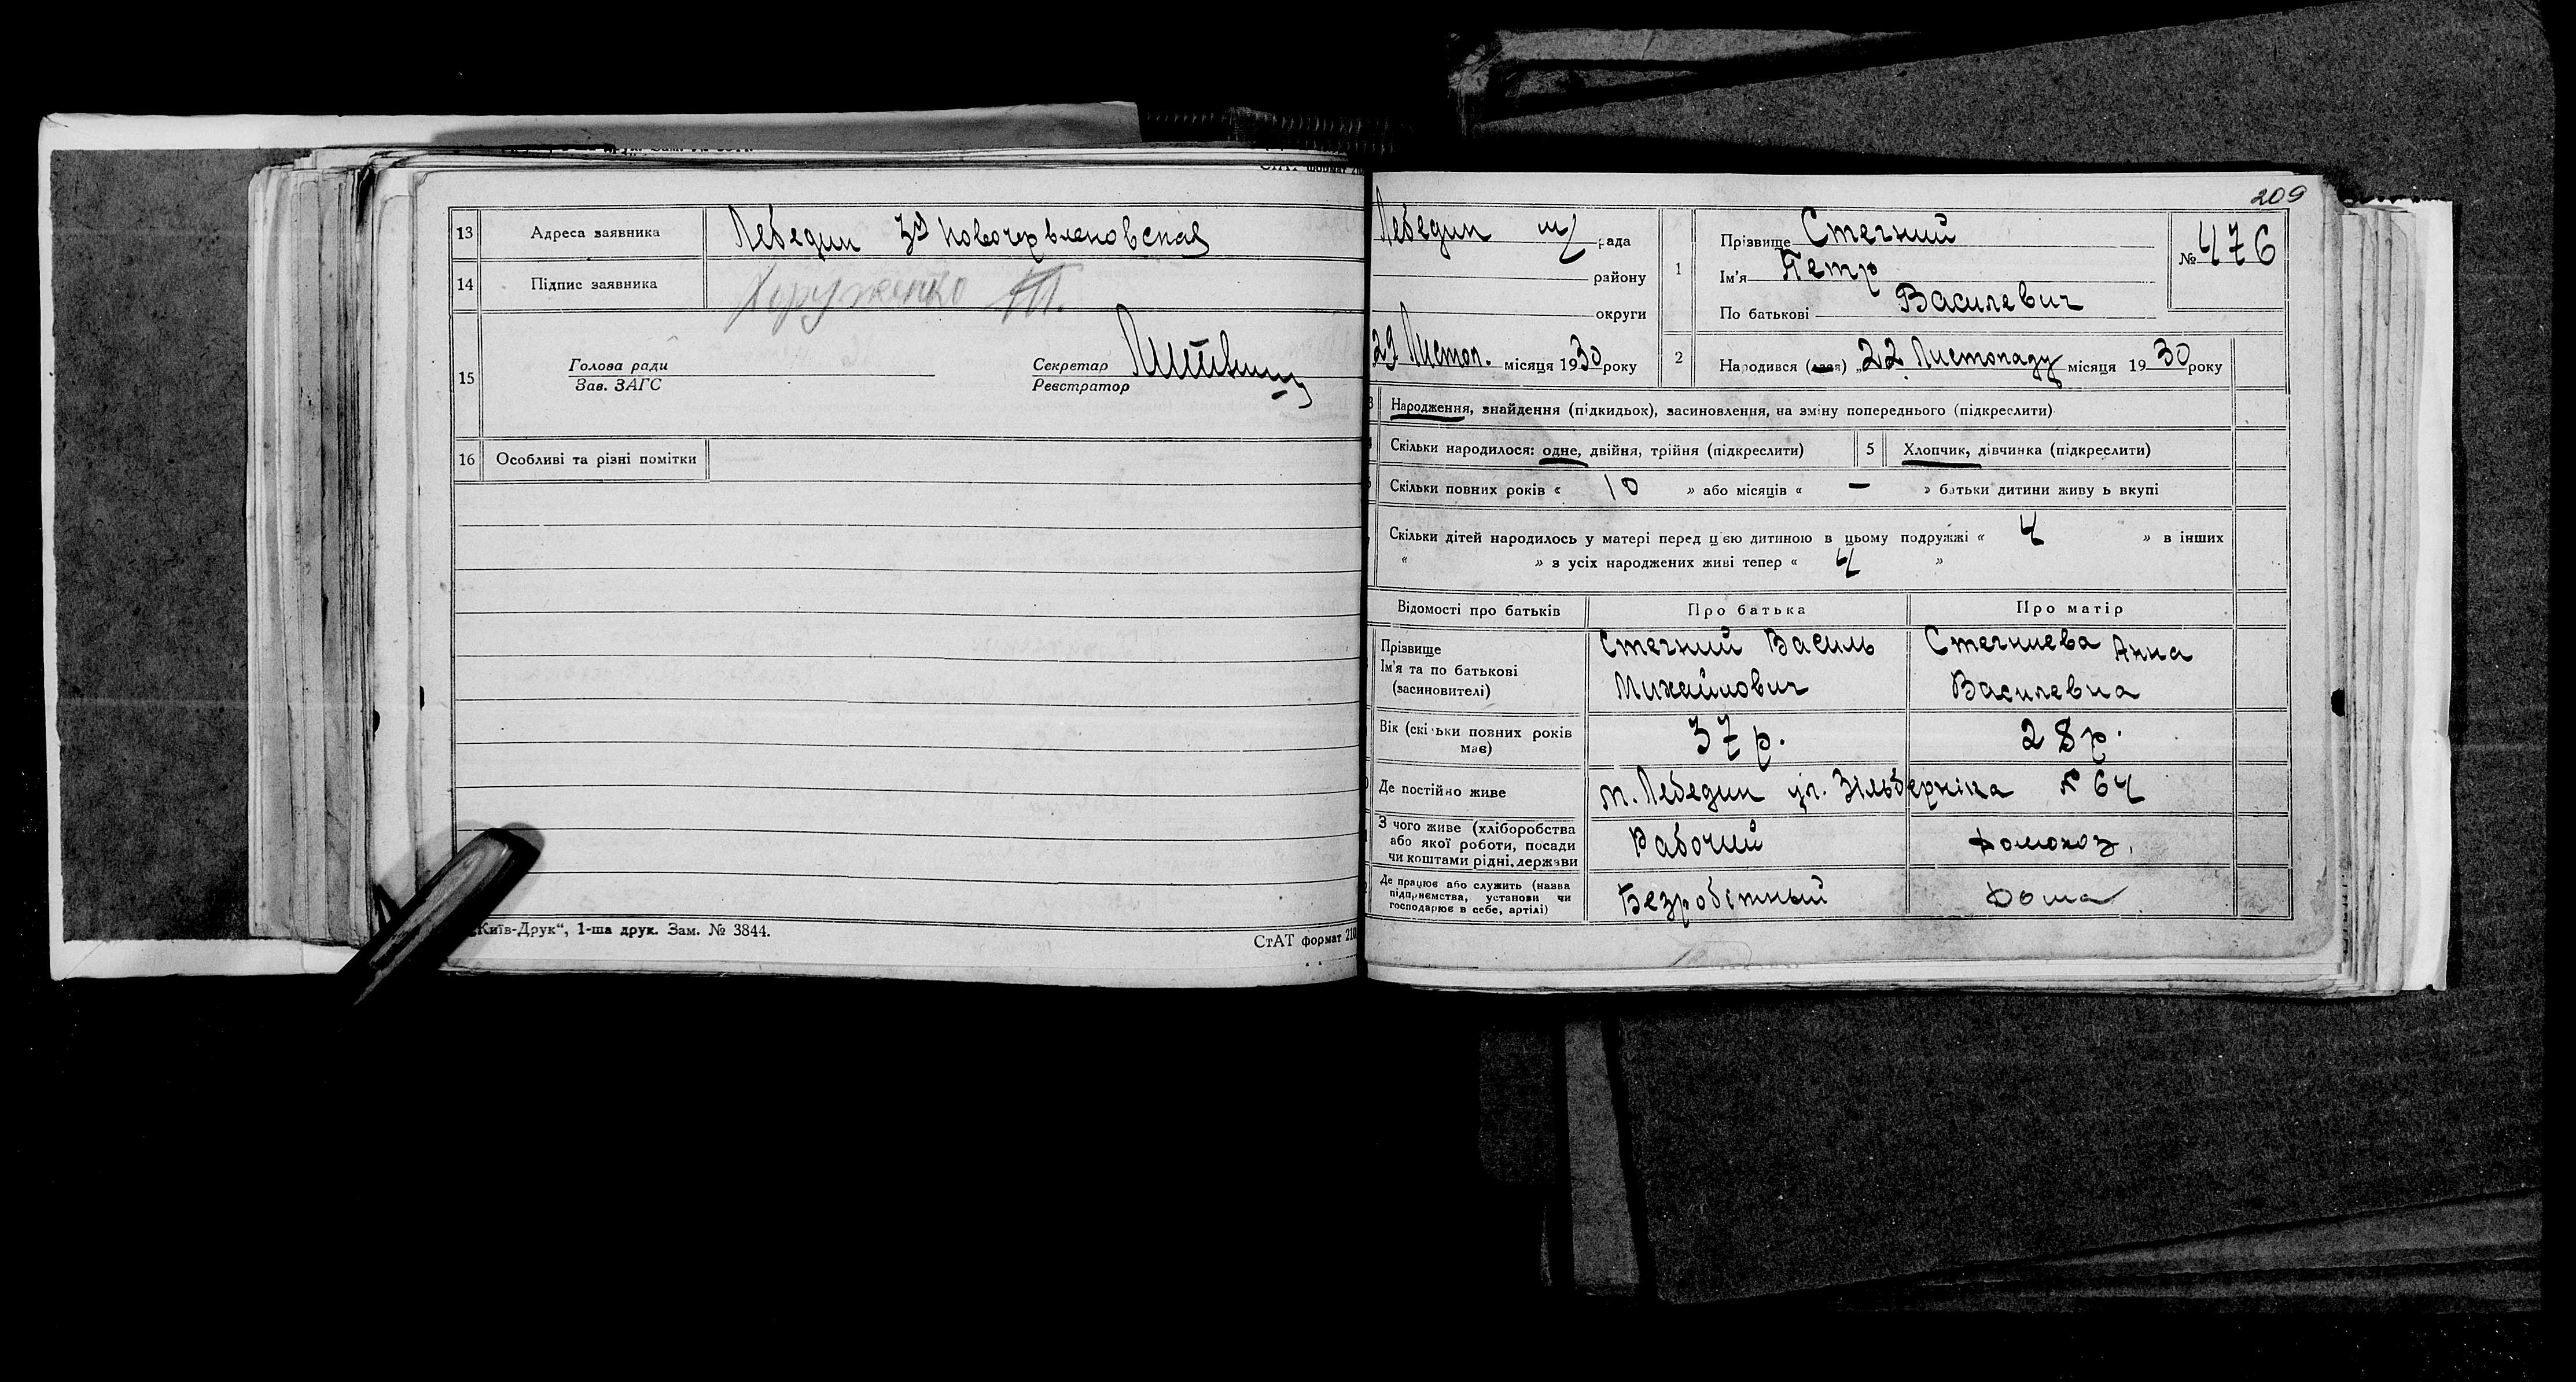 СтАТ формат 210
13 Адреса заявника Лебедин
14 Підпис заявника Хоруженко
15 Голова ради
Зав. ЗАГС
Секретар
Реєстратор
16 Особливі та різні помітки
„Київ-Друк“, 1-ша друк. Зам. № 3844.
СтАТ формат 210
209
Лебедин м/рада
району
округи
29 Листоп. місяця 1930 року
1 Прізвище Стегний
Ім'я Петр
По батькові Василевич
№ 476
2 Народився (лася) „22 Листопаду місяця 1930 року
3 Народження, знайдення (підкидьок), засиновлення, на зміну попереднього (підкреслити)
Скільки народилося: одне, двійня, трійня (підкреслити) 5 Хлопчик, дівчинка (підкреслити)
Скільки повних років « 10 » або місяців « — » батьки дитини живу ь вкупі
Скільки дітей народилось у матері перед цією дитиною в цьому подружжі « 4 » в інших
« » з усіх народжених живі тепер « 4 »
Відомості про батьків Про батька Про матір
Прізвище
Ім'я та по батькові
(засиновителі)
Стегний Василь
Михайлович
Стегниева Анна
Василевна
Вік (скільки повних років
має)
37 р.
28 р.
Де постійно живе м. Лебедин ул. Зільберніка № 64
З чого живе (хліборобства
або якої роботи, посади
чи коштами рідні, держави
Рабочий
Домохоз.
Де працює або служить (назва
підприємства, установи чи
господарює в себе, артілі)
Безробітный
Дома